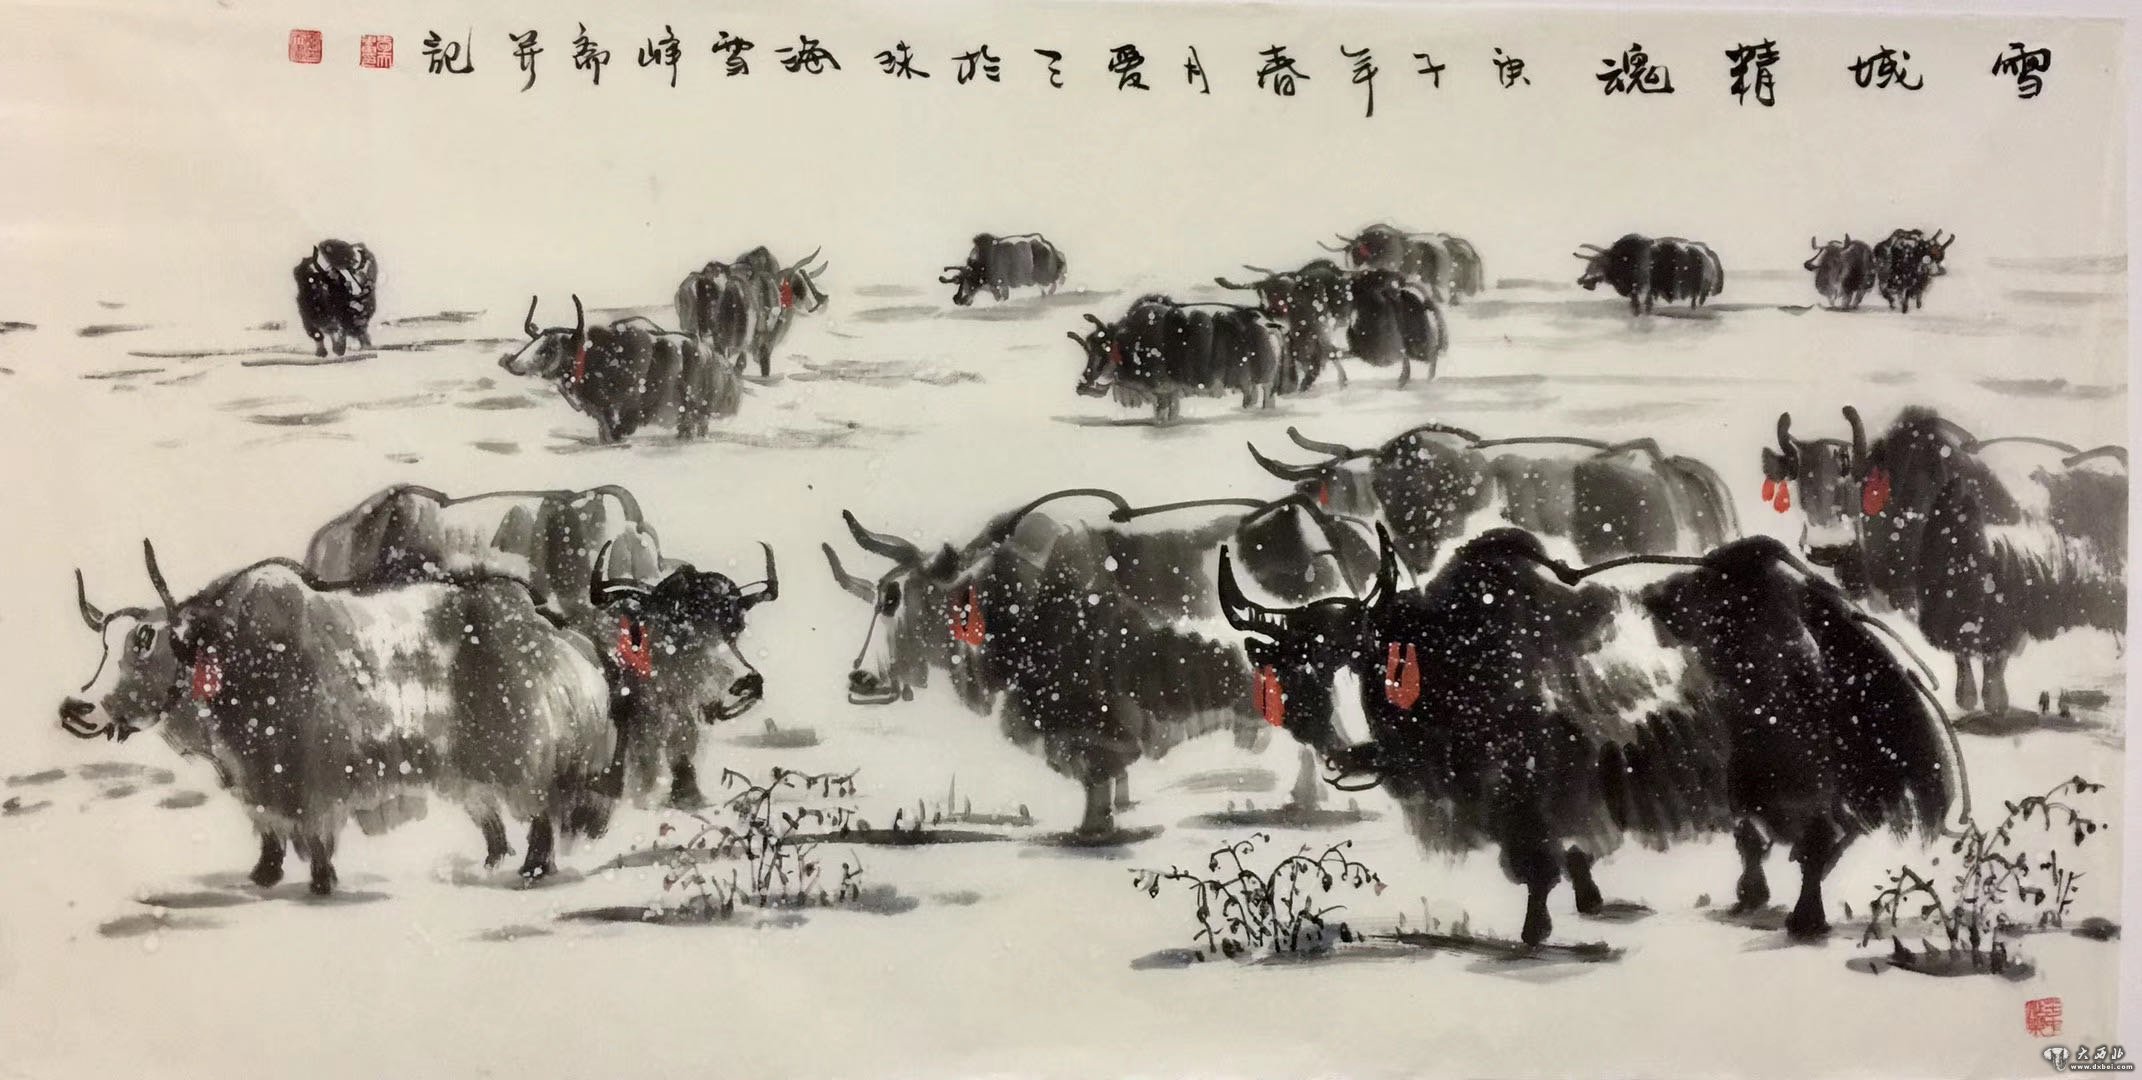 雪域精魂 庚子年春月爱三於珠海雪峰斋并记
大西北
www.dxbei.com